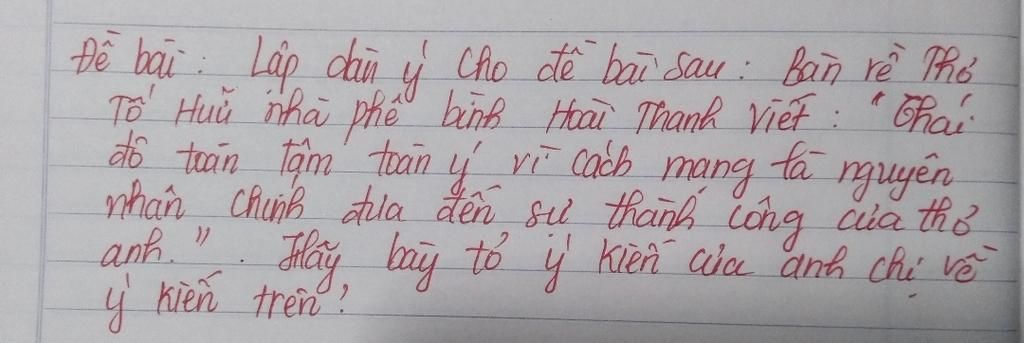 Đề bài: Lập dàn ý cho đề bài sau: Bàn về Thơ
Tố Hữu nhà phê bình Hoài Thanh viết: "Thái
độ toàn tâm toàn ý vì cách mạng là nguyên
nhân chính đưa đến sự thành công của thơ
anh.". Hãy bày tỏ ý kiến của anh chị về
ý kiến trên?